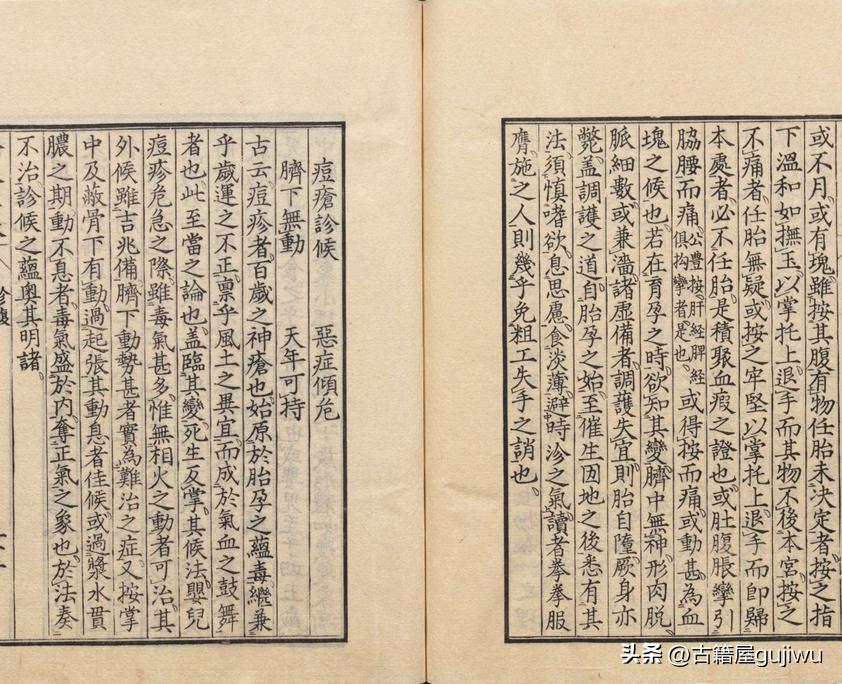 或不月或有塊雖按其腹有物任胎未決定者按之指
下溫和如撫玉以掌托上退手而其物不後本宮按之
不痛者任胎無疑或按之牢堅以掌托上退手而即歸
本處者必不任胎是積聚血瘕之證也或肚腹脹攣引
脇腰而痛公豊按肝經脾經俱拘攣者是也或得按而痛或動甚為血
塊之候也若在育孕之時欲知其變臍中無神形肉脫
脈細數或兼濇諸虛備者調護失宜則胎自墮厥身亦
斃蓋調護之道自胎孕之始至催生因地之後悉有其
法須慎嗜欲息思慮食淡薄避時沴之氣讀者拳拳服
膺施之人則幾乎免粗工失手之誚也
痘瘡診候 惡症傾危
臍下無動 天年可持
古云痘疹者百歲之神瘡也始原於胎孕之蘊毒繼兼
乎歲運之不正禀乎風土之異宜而成於氣血之鼓舞
者也此至當之論也蓋臨其變死生反掌其候法嬰兒
痘疹危急之際雖毒氣甚多惟無相火之動者可治其
外候雖吉兆備臍下動勢甚者實為難治之症又按掌
中及蔽骨下有動過起張其動息者佳候或過漿水貫
膿之期動不息者毒氣盛於內奪正氣之象也於法奏
不治診候之蘊奧其明諸
头条 @古籍屋gujiwu